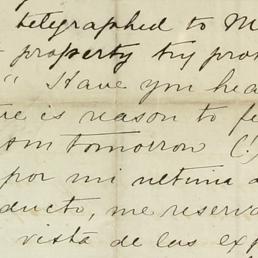 telegraphed to M
property try pro
" Have you hea
is reason to fe
tomorrow (!)
por mi ultima
ducto, me reserva
vista de las exp